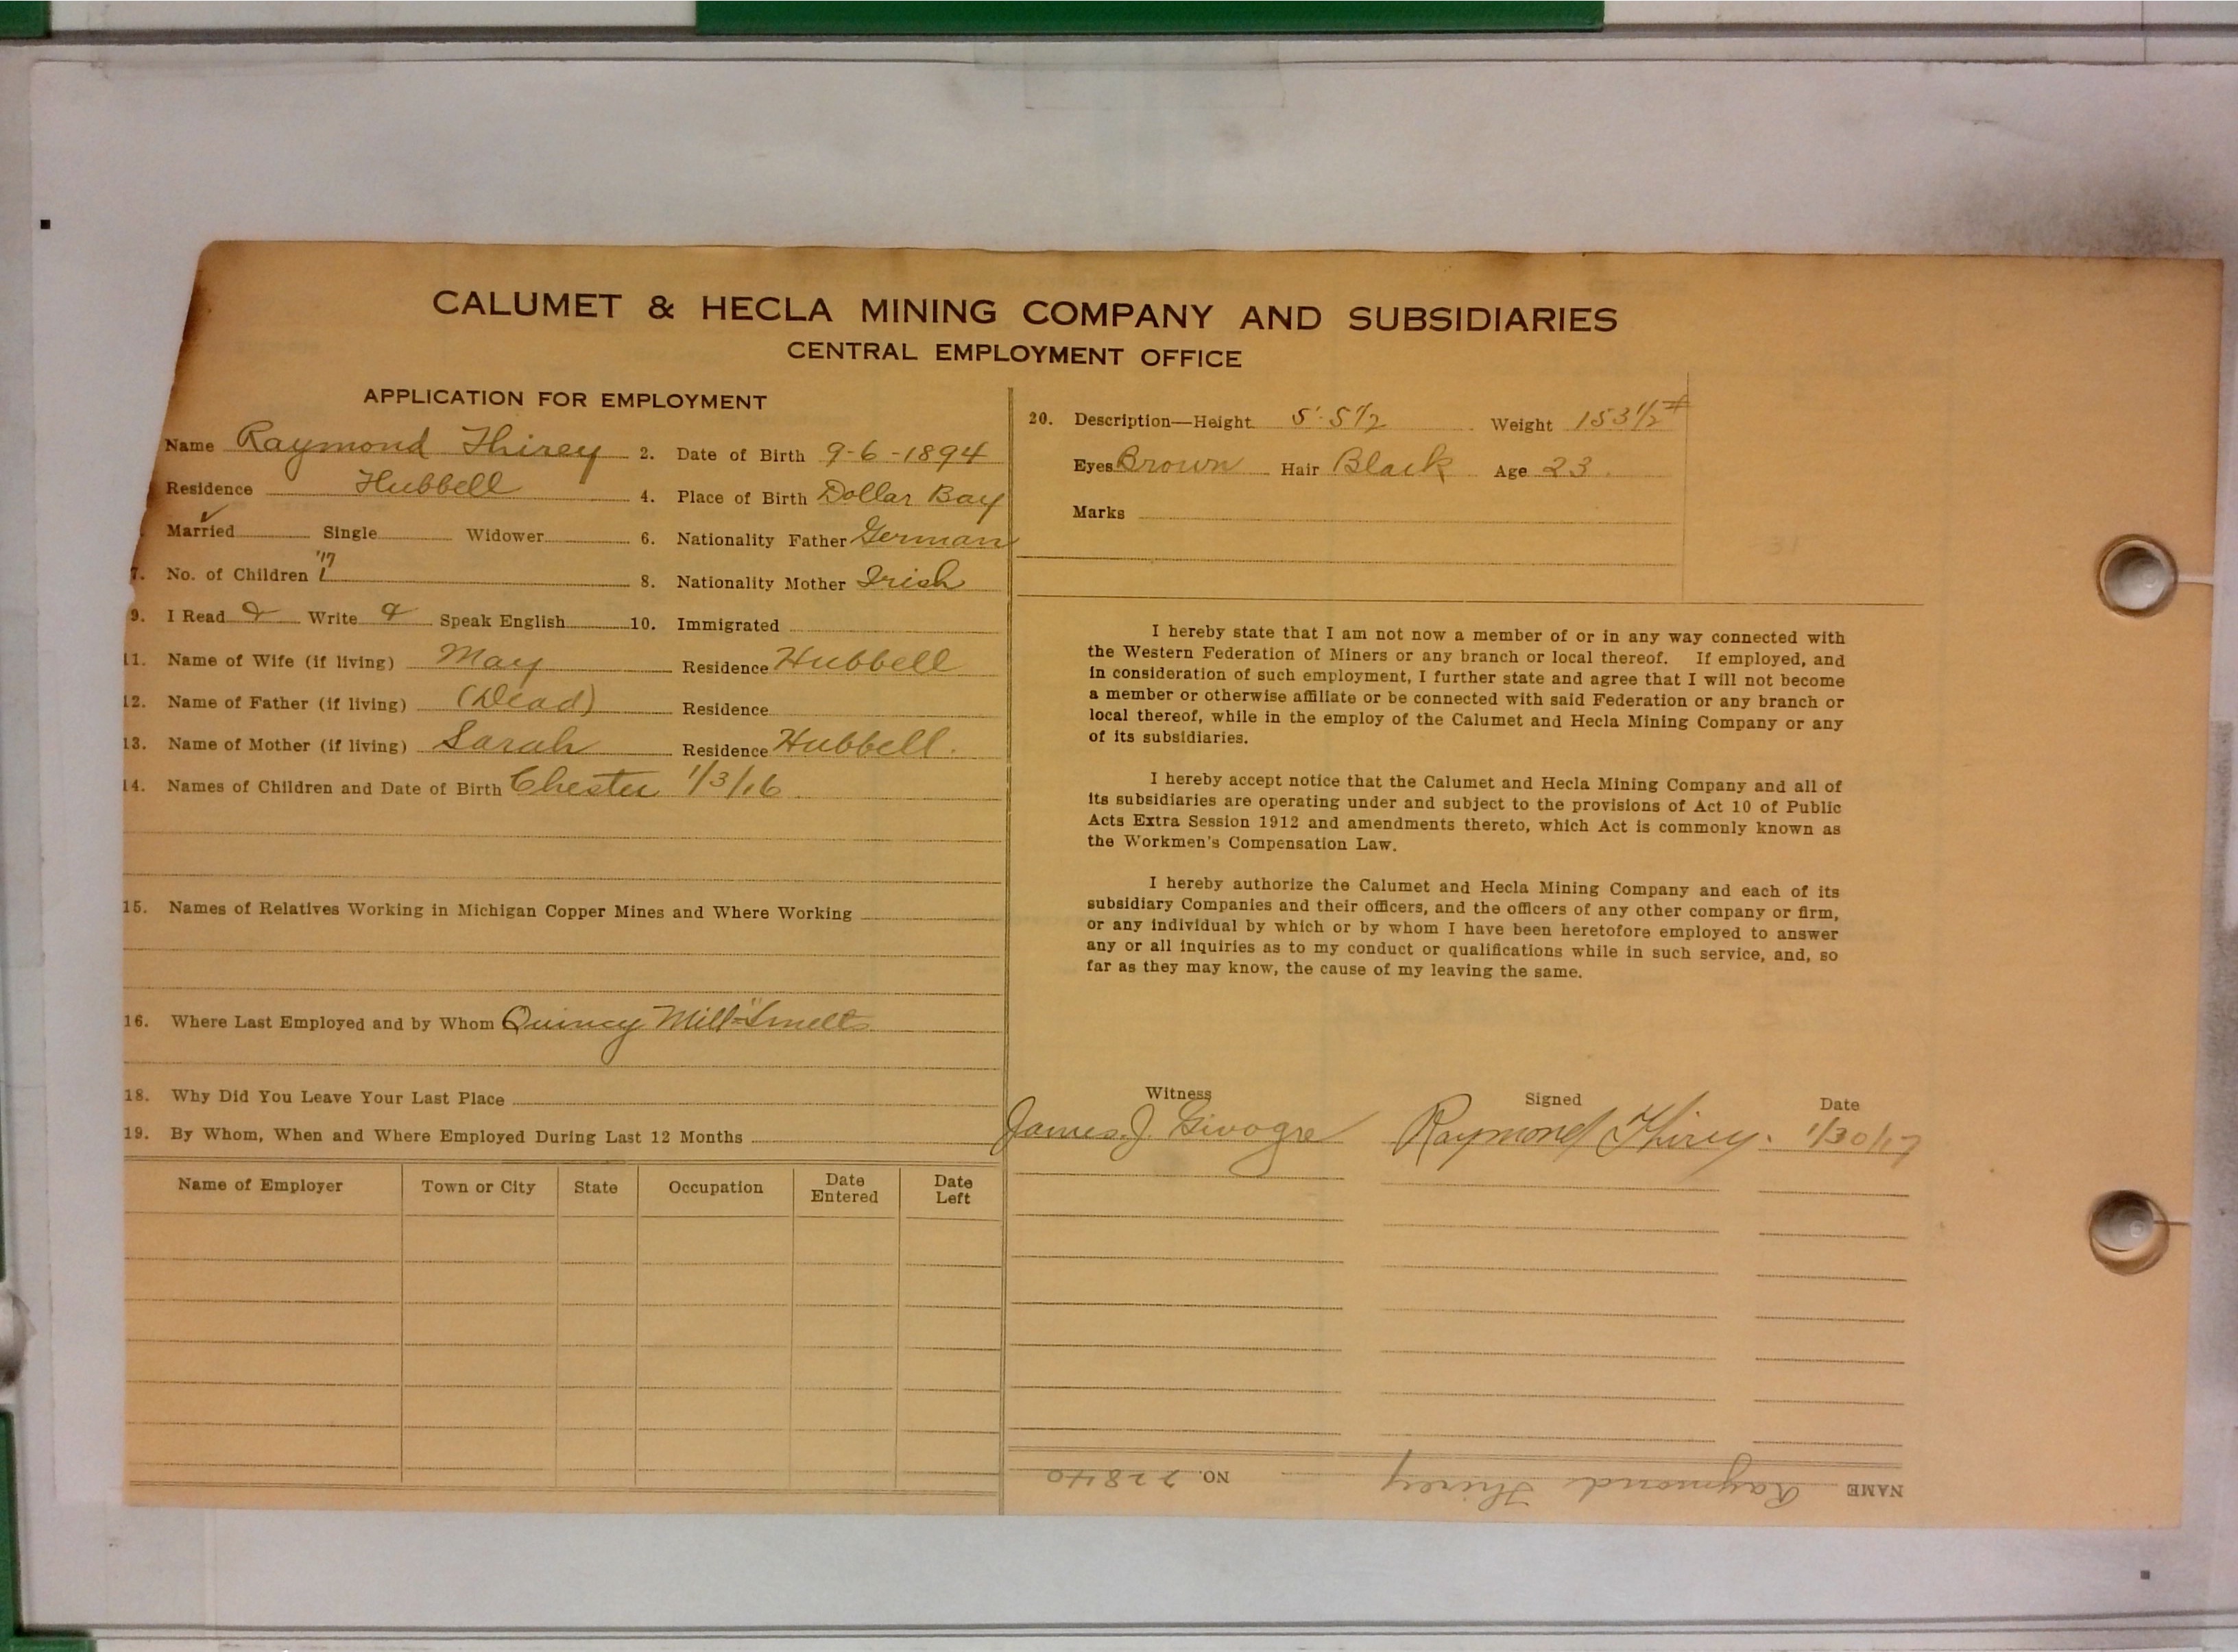 CALUMET & HECLA MINING COMPANY AND SUBSIDIARIES
CENTRAL EMPLOYMENT OFFICE
APPLICATION FOR EMPLOYMENT
Name Raymond Thirey 2. Date of Birth 9-6-1894
Residence Hubbell 4. Place of Birth Dollar Bay
Married ✓ Single Widower 6. Nationality Father German
7. No. of Children 1 8. Nationality Mother Irish
9. I Read & Write & Speak English 10. Immigrated
11. Name of Wife (if living) May Residence Hubbell
12. Name of Father (if living) (Dead) Residence
13. Name of Mother (if living) Sarah Residence Hubbell.
14. Names of Children and Date of Birth Chester 1/3/16
15. Names of Relatives Working in Michigan Copper Mines and Where Working
16. Where Last Employed and by Whom Quincy Mill
18. Why Did You Leave Your Last Place
19. By Whom, When and Where Employed During Last 12 Months
Name of Employer Town or City State Occupation Date Entered Date Left
20. Description—Height 5'-5 1/2 Weight 153 1/2 #
Eyes Brown Hair Black Age 23
Marks
I hereby state that I am not now a member of or in any way connected with
the Western Federation of Miners or any branch or local thereof. If employed, and
in consideration of such employment, I further state and agree that I will not become
a member or otherwise affiliate or be connected with said Federation or any branch or
local thereof, while in the employ of the Calumet and Hecla Mining Company or any
of its subsidiaries.
I hereby accept notice that the Calumet and Hecla Mining Company and all of
its subsidiaries are operating under and subject to the provisions of Act 10 of Public
Acts Extra Session 1912 and amendments thereto, which Act is commonly known as
the Workmen's Compensation Law.
I hereby authorize the Calumet and Hecla Mining Company and each of its
subsidiary Companies and their officers, and the officers of any other company or firm,
or any individual by which or by whom I have been heretofore employed to answer
any or all inquiries as to my conduct or qualifications while in such service, and, so
far as they may know, the cause of my leaving the same.
Witness Signed Date
James J. Givogre Raymond Thirey. 1/30/17
NAME Raymond Thirey NO. 22840